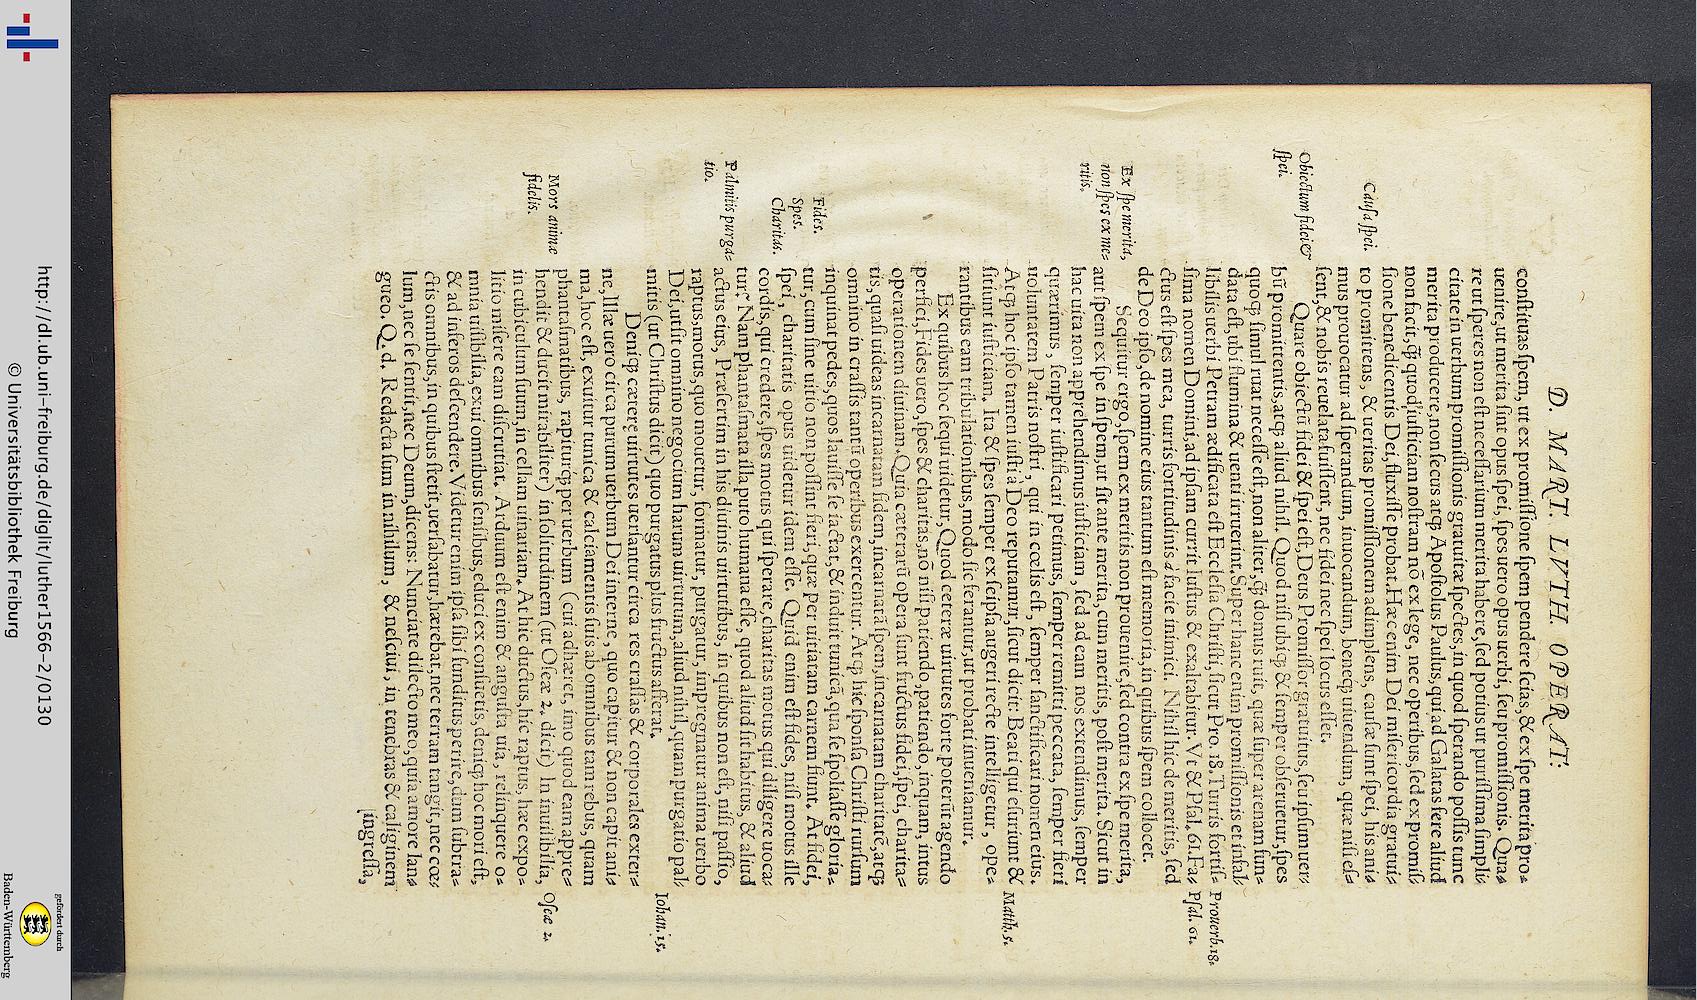 D. MART. LVTH. OPERAT.
constituas spem, ut ex promissione spem pendere scias, & ex spe merita pro-
uenire, ut merita sint opus spei, spes uero opus uerbi, seu promissionis. Qua-
re ut speres non est necessarium merita habere, sed potius ut purissima simpli-
citate in uerbum promissionis gratuitæ spectes, in quod sperando possis tunc
merita producere, non secus atq; Apostolus Paulus, qui ad Galatas fere aliud
non facit, q̃ quod iusticiam nostram nõ ex lege, nec operibus, sed ex promis-
sione benedicentis Dei, fluxisse probat. Hæc enim Dei misericordia gratui-
to promittens, & ueritas promissionem adimplens, causæ sunt spei, his ani-
Causa spei.
mus prouocatur ad sperandum, inuocandum, beneq; uiuendum, quæ nisi es-
sent, & nobis reuelata fuissent, nec fidei nec spei locus esset.
Obiectum fidei &
spei.
Quare obiectũ fidei & spei est, Deus Promissor gratuitus, seu ipsum uer-
bũ promittentis, atq; aliud nihil. Quod nisi ubiq; & semper obseruetur, spes
quoq; simul ruat necesse est, non aliter, q̃ domus ruit, quæ super arenam fun-
data est, ubi flumina & uenti irruerint. Super hanc enim promissionis et infal-
libilis uerbi Petram ædificata est Ecclesia Christi, sicut Pro. 18. Turris fortis-
Prouerb. 18.
sima nomen Domini, ad ipsam currit Iustus & exaltabitur. Vt & Psal. 61. Fa-
Psal. 61.
ctus est spes mea, turris fortitudinis a facie inimici. Nihil hic de meritis, sed
de Deo ipso, de nomine eius tantum est memoria, in quibus spem collocet.
Ex spe merita,
non spes ex me-
ritis.
Sequitur ergo, spem ex meritis non prouenire, sed contra ex spe merita,
aut spem ex spe in spem, ut sit ante merita, cum meritis, post merita. Sicut in
hac uita non apprehendimus iusticiam, sed ad eam nos extendimus, semper
quærimus, semper iustificari petimus, semper remitti peccata, semper fieri
uoluntatem Patris nostri, qui in cœlis est, semper sanctificari nomen eius.
Atq; hoc ipso tamen iusti a Deo reputamur, sicut dicit: Beati qui esuriunt &
Matth. 5.
sitiunt iusticiam. Ita & spes semper ex seipsa augeri recte intelligetur, ope-
rantibus eam tribulationibus, modo sic ferantur, ut probati inueniamur.
Ex quibus hoc sequi uidetur, Quod ceteræ uirtutes forte poterũt agendo
perfici, Fides uero, spes & charitas, nõ nisi patiendo, patiendo, inquam, intus
operationem diuinam. Quia cæterarũ opera sunt fructus fidei, spei, charita-
tis, quasi uideas incarnatam fidem, incarnatã spem, incarnatam charitatẽ, atq;
omnino in crassis tantũ operibus exercentur. Atq; hîc sponsa Christi rursum
inquinat pedes, quos lauisse se iactat, & induit tunicã, qua se spoliasse gloria-
Fides.
Spes.
Charitas.
tur, cum sine uitio non possint fieri, quæ per uitiatam carnem fiunt. At fidei,
spei, charitatis opus uidetur idem esse. Quid enim est fides, nisi motus ille
cordis, qui credere, spes motus qui sperare, charitas motus qui diligere uoca-
tur? Nam phantasmata illa, puto humana esse, quod aliud sit habitus, & aliud
Palmitis purga-
tio.
actus eius. Præsertim in his diuinis uirtutibus, in quibus non est, nisi passio,
raptus, motus, quo mouetur, formatur, purgatur, impregnatur anima uerbo
Dei, ut sit omnino negocium harum uirtutum, aliud nihil, quam purgatio pal-
mitis (ut Christus dicit) quo purgatus plus fructus afferat.
Iohan. 15.
Deniq; cæterę uirtutes uersantur circa res crassas & corporales exter-
ne, Illæ uero circa purum uerbum Dei interne, quo capitur & non capit ani-
ma, hoc est, exuitur tunica & calciamentis suis ab omnibus tam rebus, quam
phantasmatibus, rapiturq; per uerbum (cui adhæret, imo quod eam appre-
Mors animæ
fidelis.
hendit & ducit mirabiliter) in solitudinem (ut Oseæ 2. dicit) In inuisibilia,
Oseæ 2.
in cubiculum suum, in cellam uinariam. At hic ductus, hic raptus, hæc expo-
litio misere eam discrutiat. Arduum est enim & angusta uia, relinquere o-
mnia uisibilia, exui omnibus sensibus, educi ex consuetis, deniq; hoc mori est,
& ad inferos descendere. Videtur enim ipsa sibi funditus perire, dum subtra-
ctis omnibus, in quibus stetit, uersabatur, hærebat, nec terram tangit, nec cœ-
lum, nec se sentit, nec Deum, dicens: Nunciate dilecto meo, quia amore lan-
gueo. Q. d. Redacta sum in nihilum, & nesciui, in tenebras & caliginem
[ingressa,
http://dl.ub.uni-freiburg.de/diglit/luther1566-2/0130
© Universitätsbibliothek Freiburg
gefördert durch
Baden-Württemberg